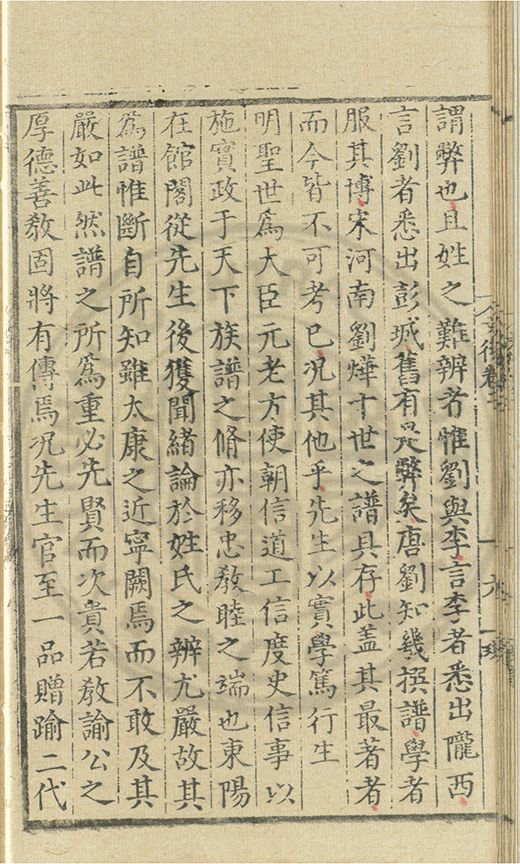 謂弊也且姓之難辨者惟劉與李言李者悉出隴西
言劉者悉出彭城舊有是弊矣唐劉知幾撰譜學者
服其博宋河南劉燁十世之譜具存此盖其最著者
而今皆不可考已况其他乎先生以實學篤行生
明聖世爲大臣元老方使朝信道工信度史信事以
施實政于天下族譜之脩亦移忠敎睦之端也東陽
在館閣從先生後獲聞緒論於姓氏之辨尤嚴故其
爲譜惟斷自所知雖太康之近寧闕焉而不敢及其
嚴如此然譜之所爲重必先賢而次貴若敎諭公之
厚德善敎固將有傳焉况先生官至一品贈踰二代